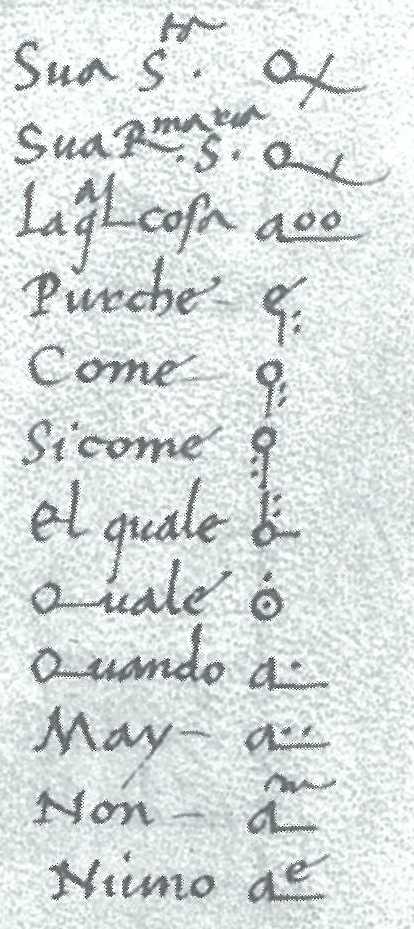 Sua S.tà
Sua R.ma S.
La ql cosa aoo
Purche
Come
Sicome
el quale
Quale
Quando a
May a
Non a m
Niuno a e